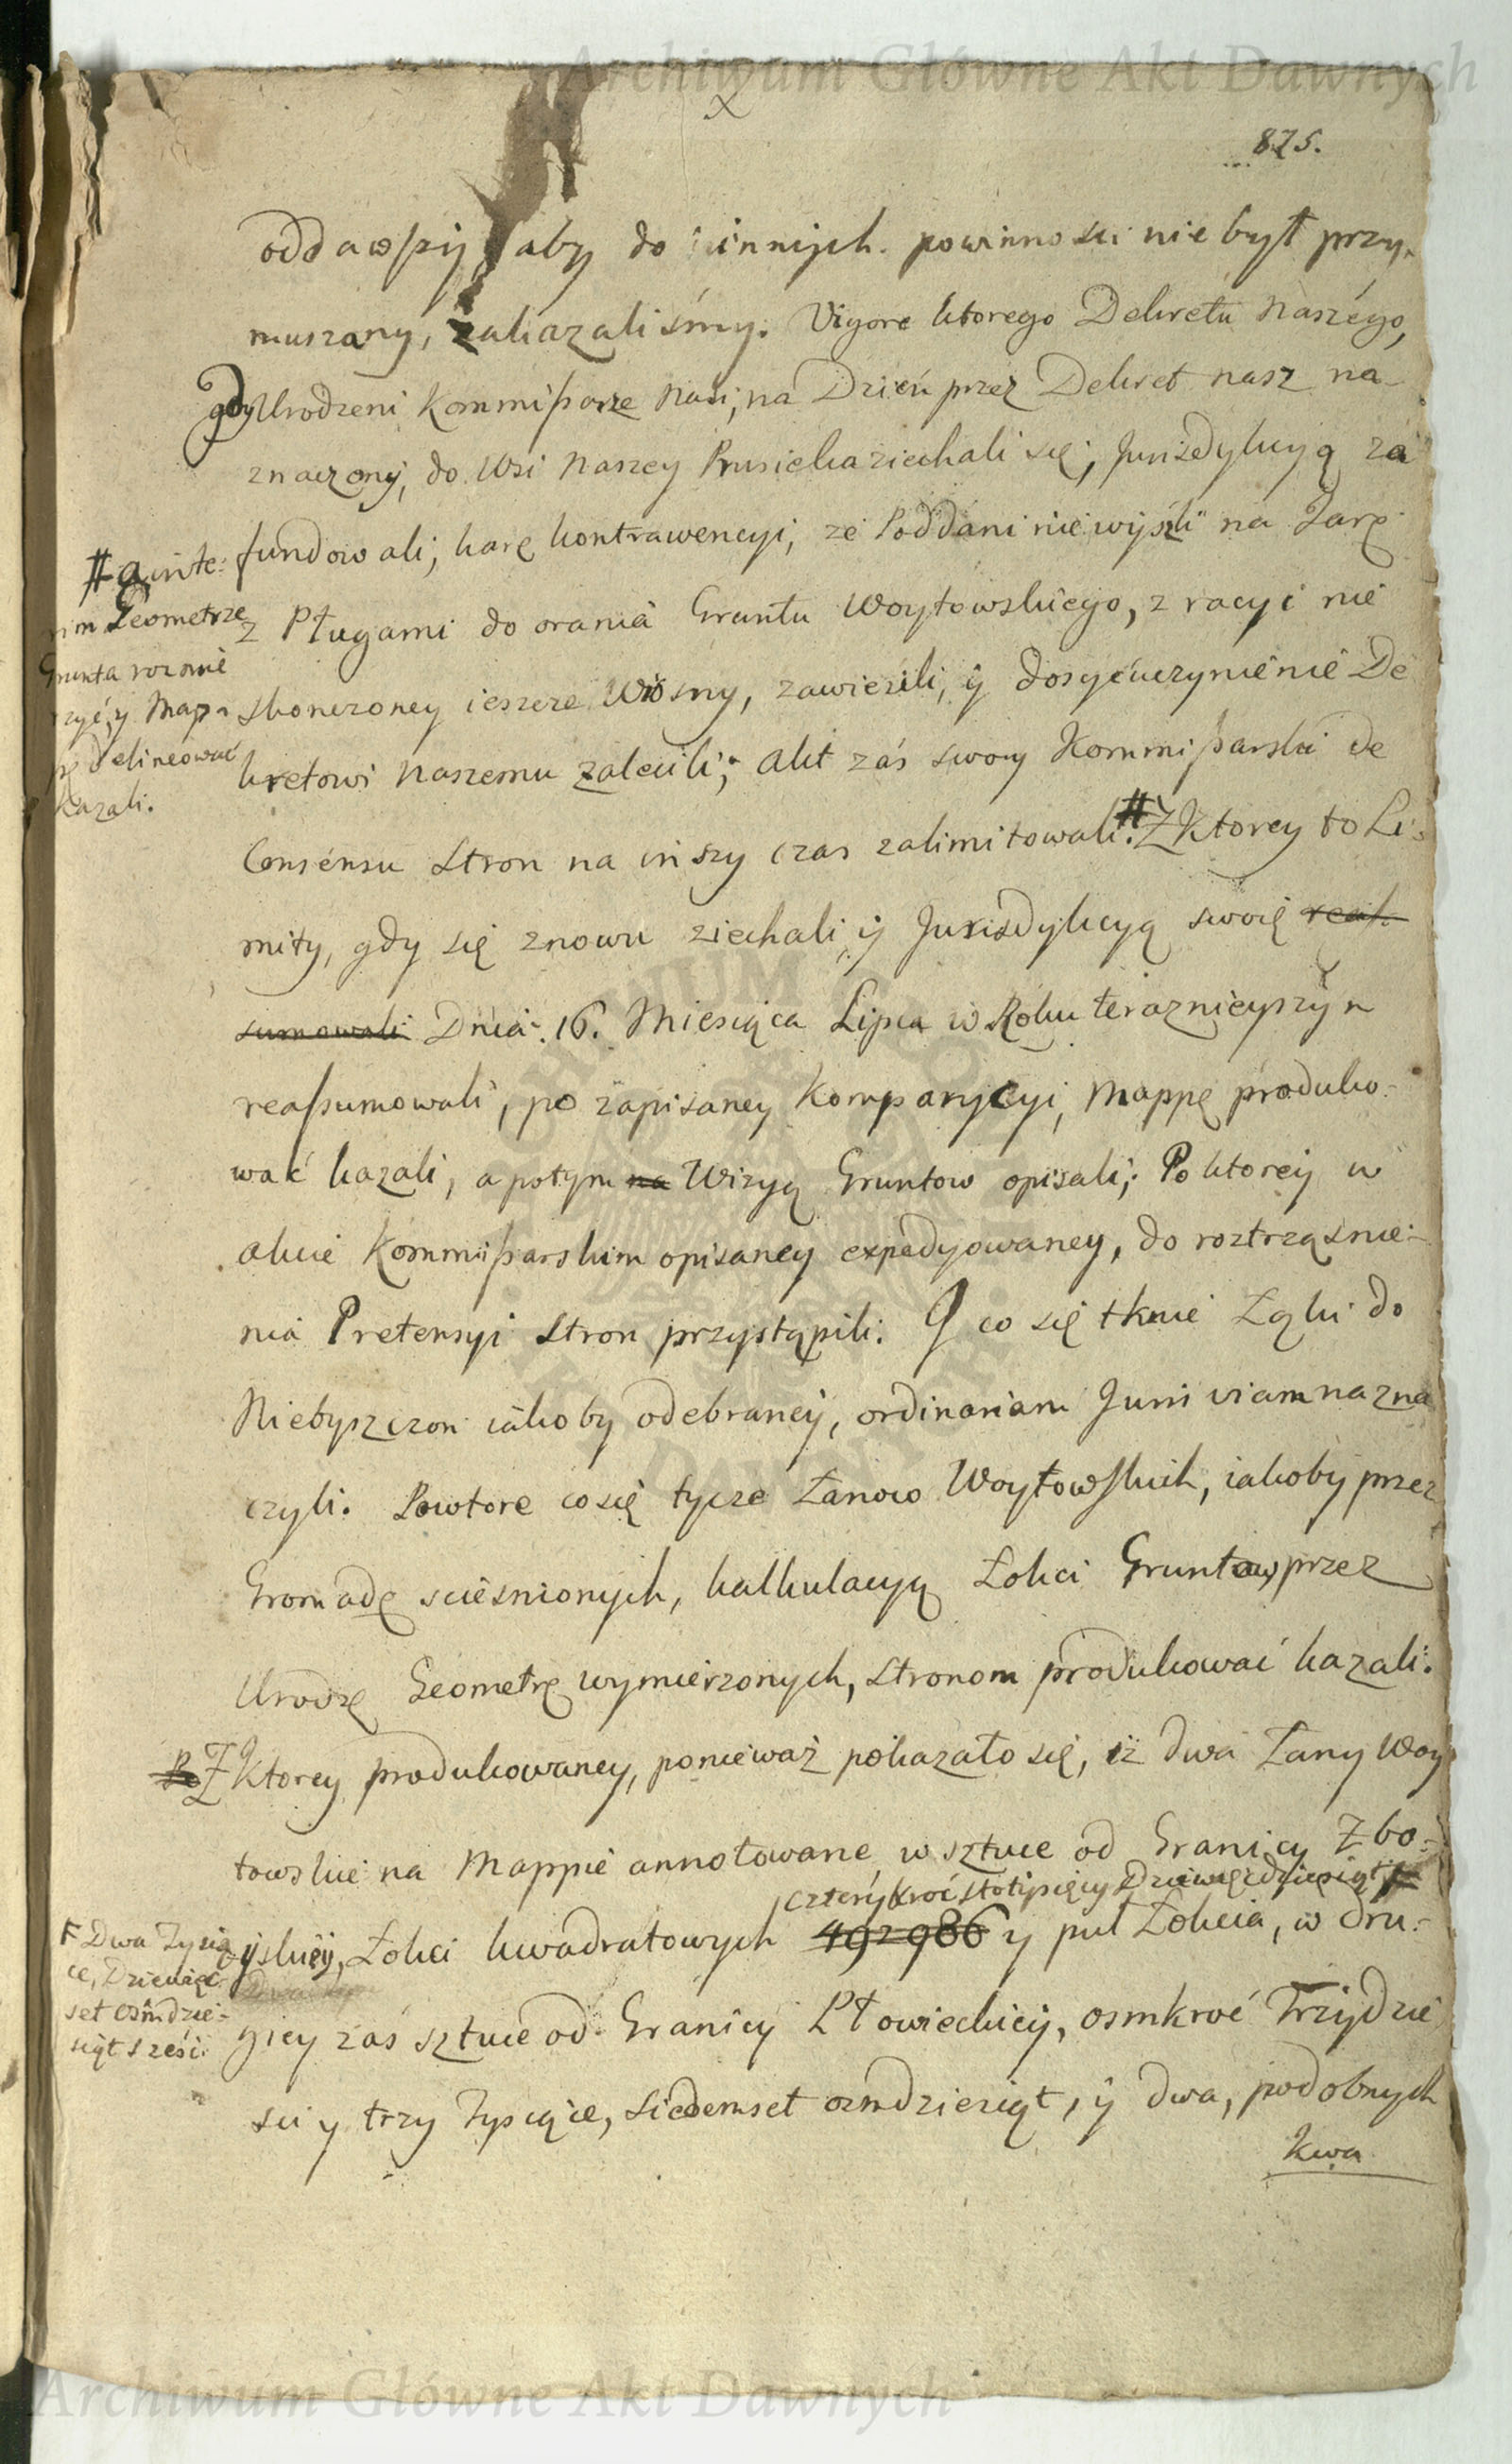 Archiwum Główne Akt Dawnych
825.
oddawszy, aby do innych powinnosci nie był przy-
muszany, zakazalismy. Vigore ktorego Dekretu Naszego,
gdy Urodzeni Kommissarze Nasi, na Dzień przez Dekret nasz na-
znaczony, do Wsi Naszey Prusieka ziechali się, Jurisdykcyą za
fundowali, karę kontrawencyi, ze Poddani nie wyszli na Jarę
z Pługami do orania Gruntu Woytowskiego, z racyi nie
skonczoney ieszcze Wiosny, zawiesili, y dosyćuczynienie De
kretowi Naszemu zalecili; Akt zaś swoy Kommissarski de
Consensu Stron na inszy czas zalimitowali. # Z Ktorey to Li-
mity, gdy się znowu ziechali, y Jurisdykcyą swoię reas-
sumowali Dnia 16. Miesiąca Lipca w Roku terazniejszym
reassumowali, po zapisaney Komparycyi, Mappę produko-
wać kazali, a potym na Wizyą Gruntow opisali; Po ktorey w
akcie Kommissarskim opisaney expedyowaney, do roztrząsnie-
nia Pretensyi Stron przystąpili. Y co się tknie Łąki do
Niebyszczon iakoby odebraney, ordinariam Juris viam nazna
czyli. Powtore co się tycze Łanow Woytowskich, iakoby przez
Gromadę sciesnionych, kalkulacyą Łokci Gruntow, przez
Urodzę Geometrę wymierzonych, Stronom produkować kazali.
Z Ktorey produkowaney, ponieważ pokazało się, iż dwa Łany Woy
towskie na Mappie annotowane, w sztuce od Granicy Zbo-
czterykroć stotysięcy Dziewiędziesiąt
yskiey, Łokci kwadratowych 492986 y puł Łokcia, w dru-
giey zaś sztuce od Granicy Płowieckiey, osmkroć Trzydzie
sci y trzy Tysiące, Siedemset osmdziesiąt, y dwa, podobnych
Kwa
# a inte-
rim Geometrze
Grunta rozmie
rzyć, y Map-
pę delineować
kazali.
Dwa Tysią
ce, Dziewięc
set osmdzie-
siąt sześć
Archiwum Główne Akt Dawnych